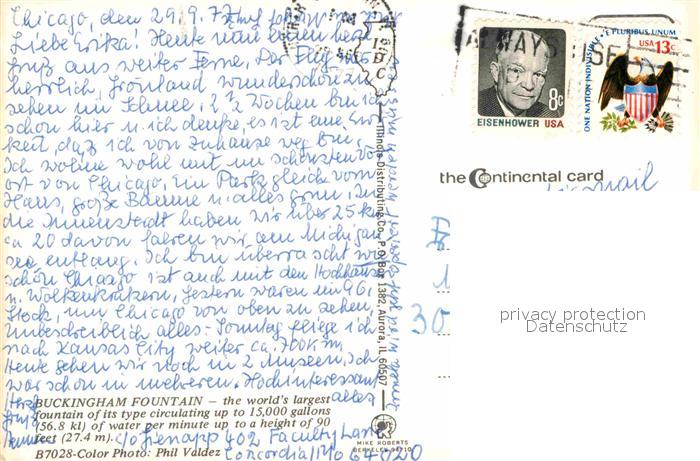 Chicago, den 29.9.77
Liebe Erika! Heute nun einen herzl.
Gruß aus weiter Ferne. Der Flug war
herrlich, Grönland wunderschön zu
sehen im Schnee. 2 1/2 Wochen bin ich
schon hier u. ich denke, es ist eine Ewig
keit, daß ich von Zuhause weg bin.
Ich wohne wohl mit im schönsten Vor
ort von Chicago. Ein Park gleich vorm
Haus, große Bäume u. alles grün. In
die Innenstadt haben wir über 25 km
ca 20 davon fahren wir am Michigan
see entlang. Ich bin überrascht wie
schön Chicago ist auch mit den Hochhäuser
u. Wolkenkratzern. Gestern waren im 96.
Stock, um Chicago von oben zu sehen.
Unbeschreiblich alles. Sonntag fliege ich
nach Kansas City weiter ca. 700 km.
Heute gehen wir noch in 2 Museen. Ich
war schon in mehreren. Hochinteressant
alles
BUCKINGHAM FOUNTAIN — the world's largest
fountain of its type circulating up to 15,000 gallons
(56.8 kl) of water per minute up to a height of 90
feet (27.4 m).
c/o Sienapp 402 Faculty Lane
B7028-Color Photo: Phil Valdez
Concordia/Mo 64020
Illinois Distributing Co., P.O. Box 1382, Aurora, IL 60507
MIKE ROBERTS
BERKELEY 94710
8c
EISENHOWER USA
E PLURIBUS UNUM
USA 13c
ONE NATION INDIVISIBLE
ALWAYS USE
the Continental card
Airmail
30
privacy protection
Datenschutz